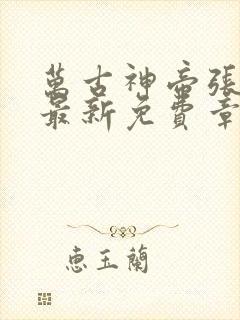 萬古神帝張
最新免費章
惠玉蘭